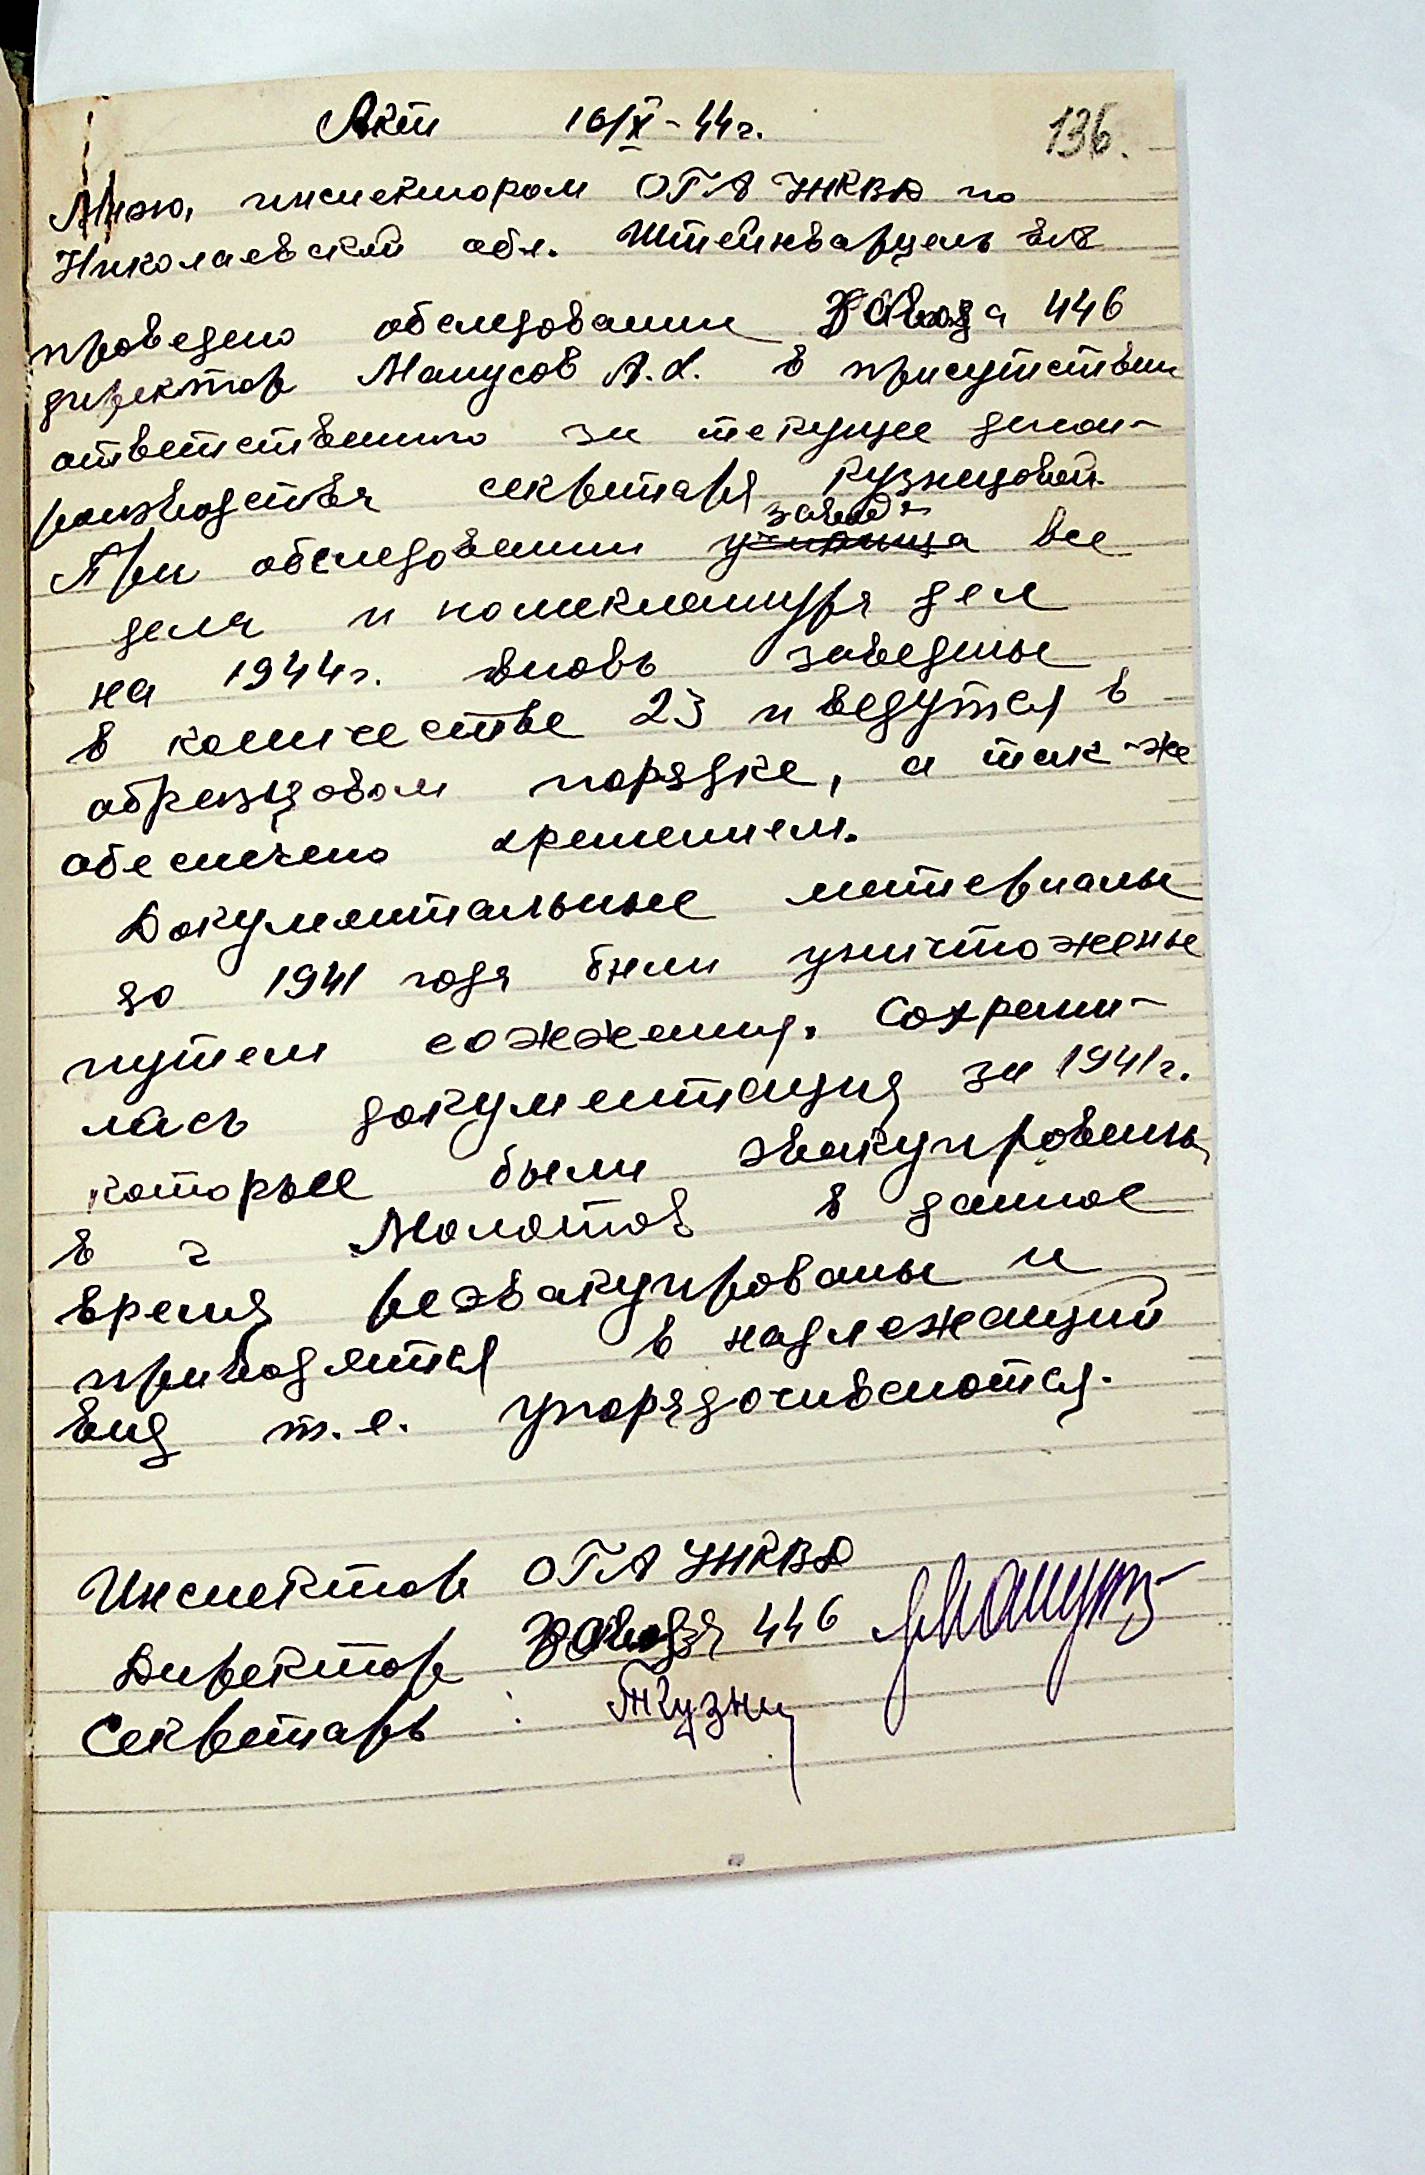 Акт 16/X-44г.
136.
Мною, инспектором ОГА УНКВД по
Николаевской обл. Штейнварцель
проведено обследовании завода 446
директор Манусов А.Л. в присутствии
ответственного за текущее делоп-
роизводства секретаря Кузнецовой.
завода
При обследовании училища все
дела и номенклатура дел
на 1944г. вновь заведены
в количестве 23 и ведутся в
образцовом порядке, а так-же
обеспечено хранением.
Документальные материалы
до 1941 года были уничтожены
путем сожжения. Сохрани-
лась документация за 1941г.
которые были эвакуированы
в г Молотов в данное
время реэвакуированы и
приводятся в надлежащий
вид т.е. упорядочиваются.
Инспектор ОГА УНКВД
Директор завода 446
Секретарь : Кузнец